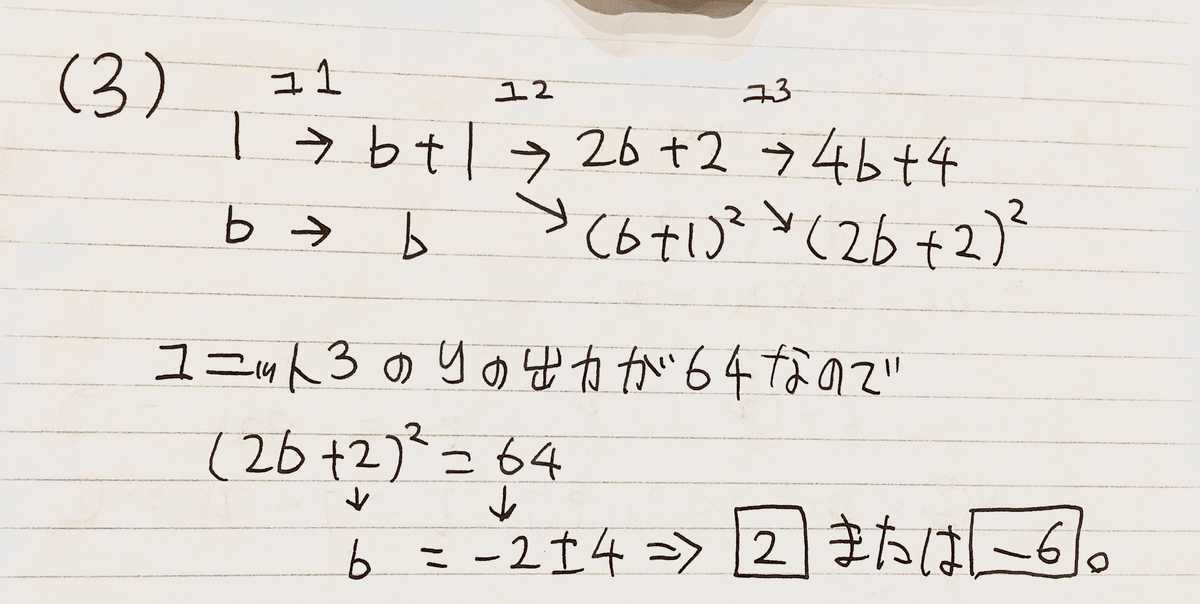 (3) ユ1 ユ2 ユ3
1 → b+1 → 2b+2 → 4b+4
b → b ↘ (b+1)² ↘ (2b+2)²
ユニット3のyの出力が64なので
(2b+2)² = 64
↓ ↓
b = -2±4 ⇒ 2 または -6。